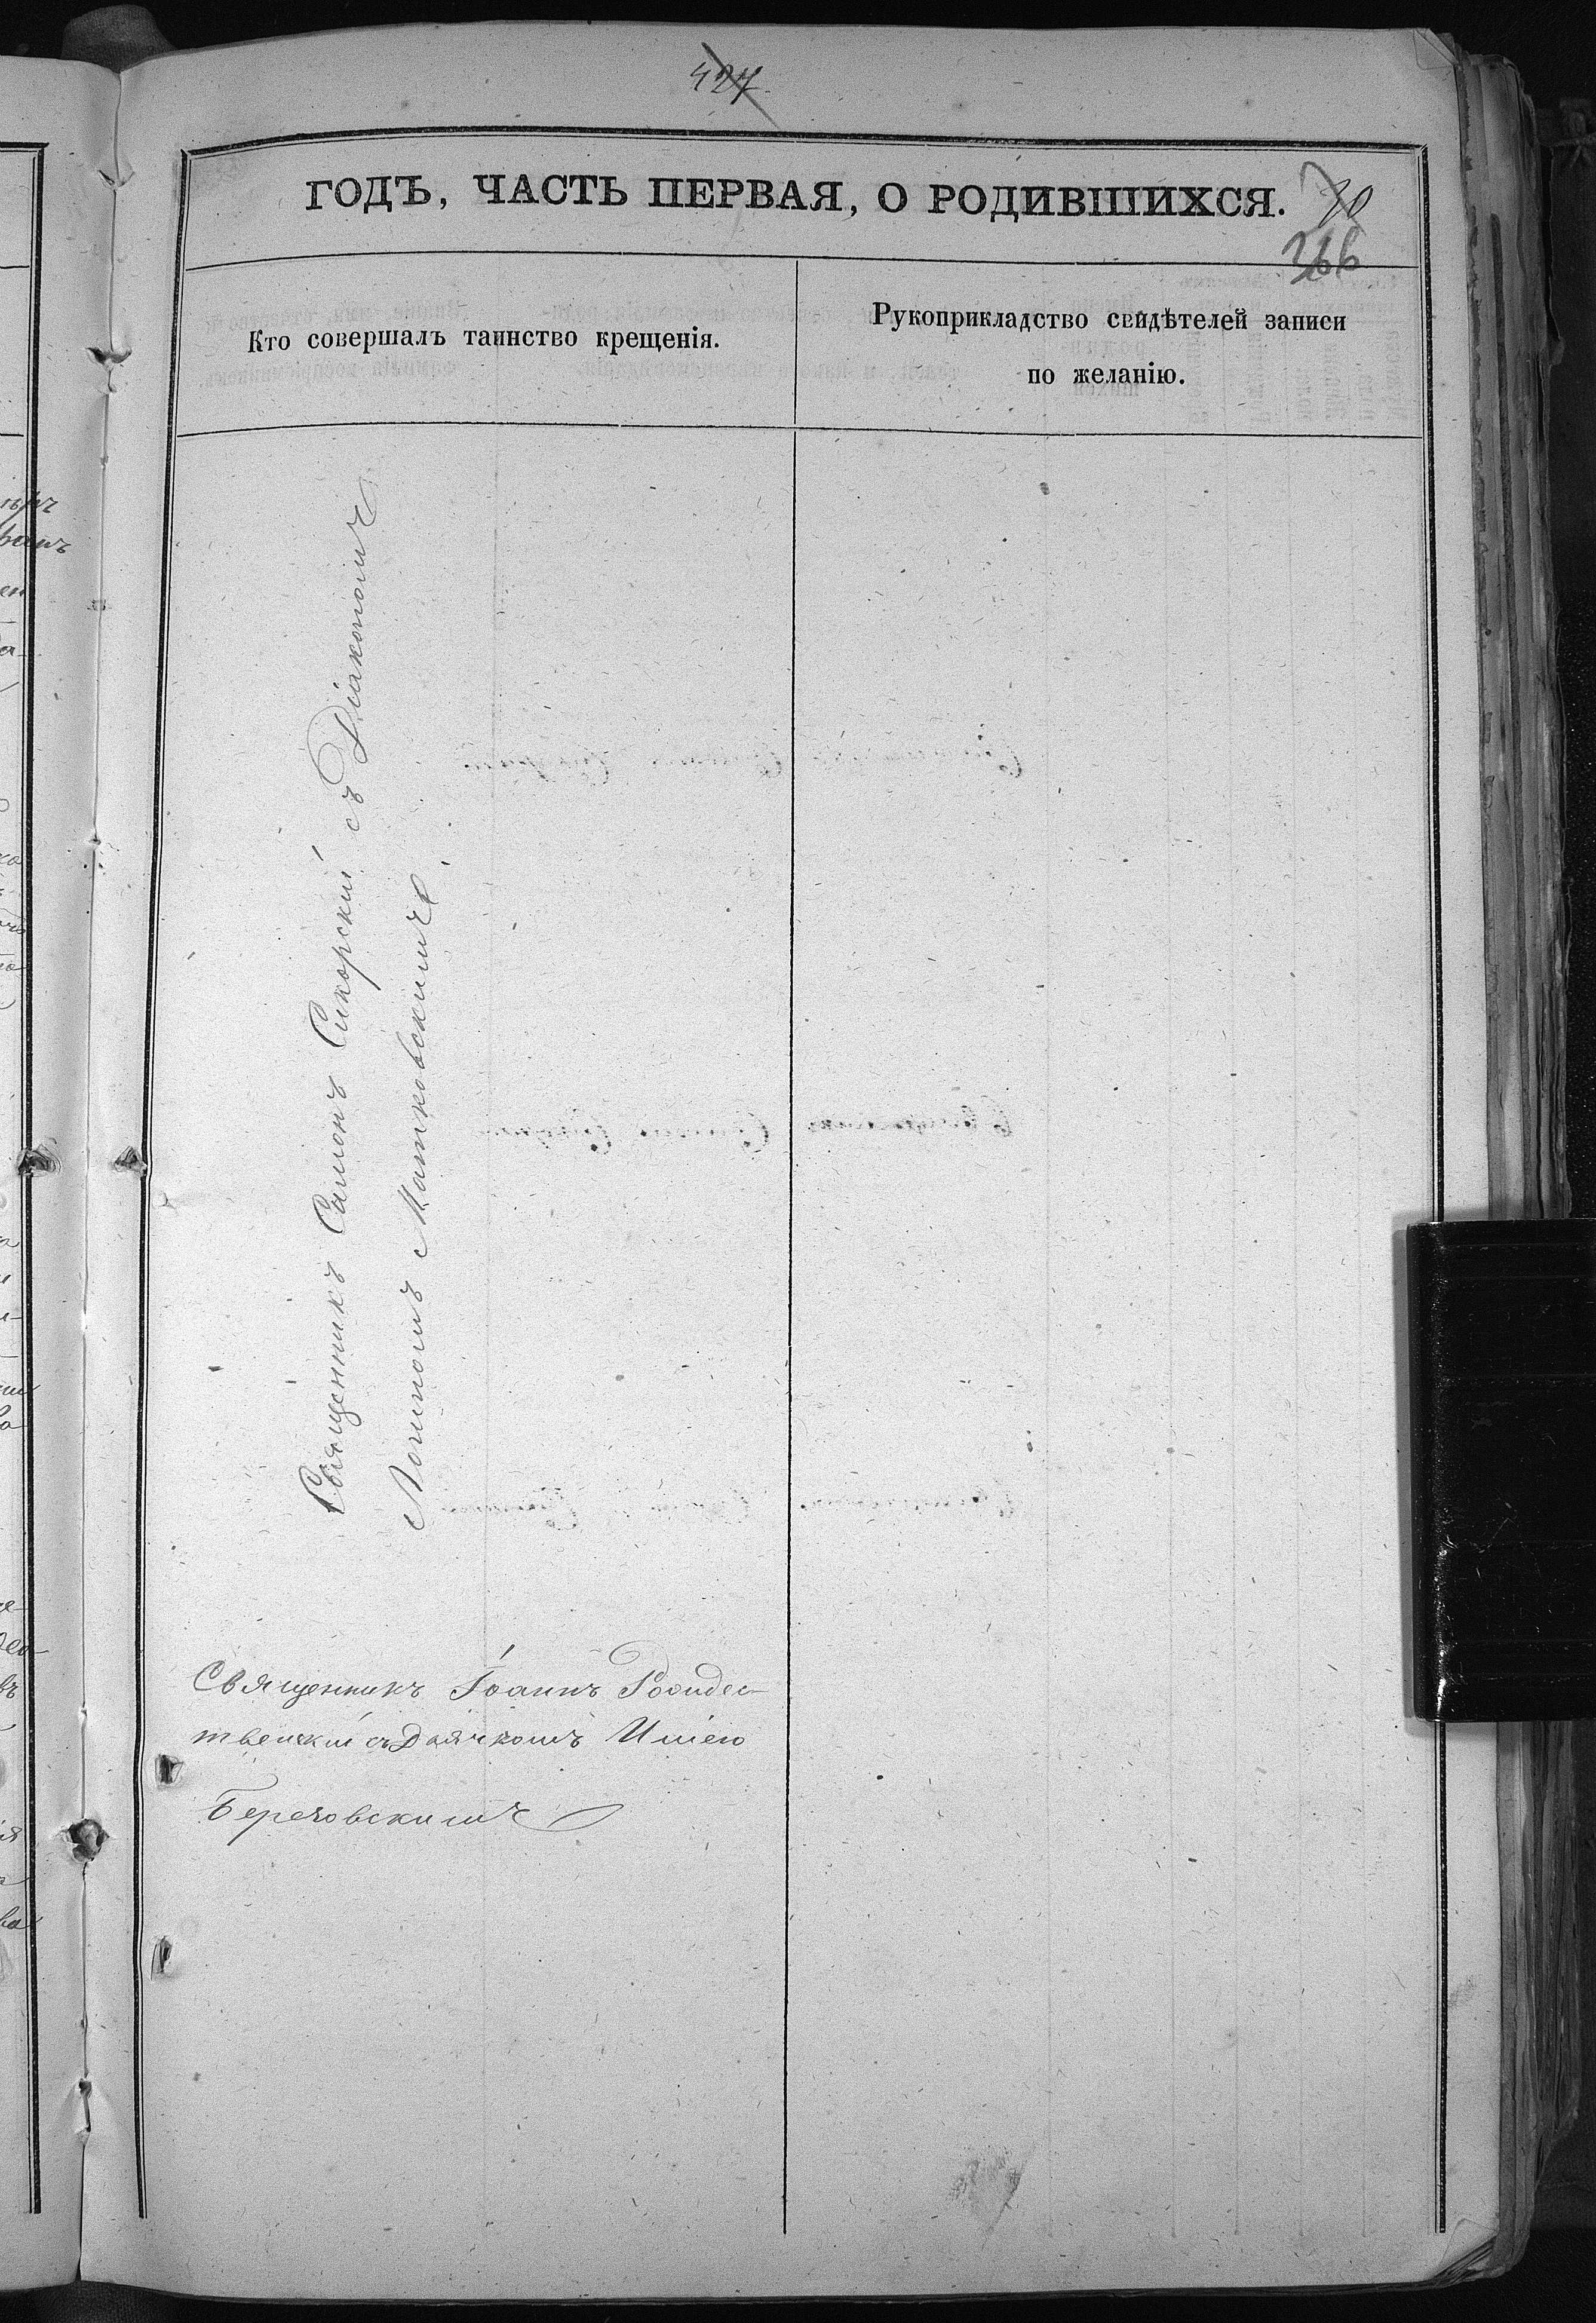 427
ГОДЪ, ЧАСТЬ ПЕРВАЯ, О РОДИВШИХСЯ.
366
Кто совершалъ таинство крещенія.
Рукоприкладство свидѣтелей записи
по желанію.
Священникъ Самонъ Сикорскій съ Діакономъ
Логиномъ Матковскимъ
Священникъ Іоаннъ Рождес-
твенскій съ Дьячкомъ
Березовскимъ